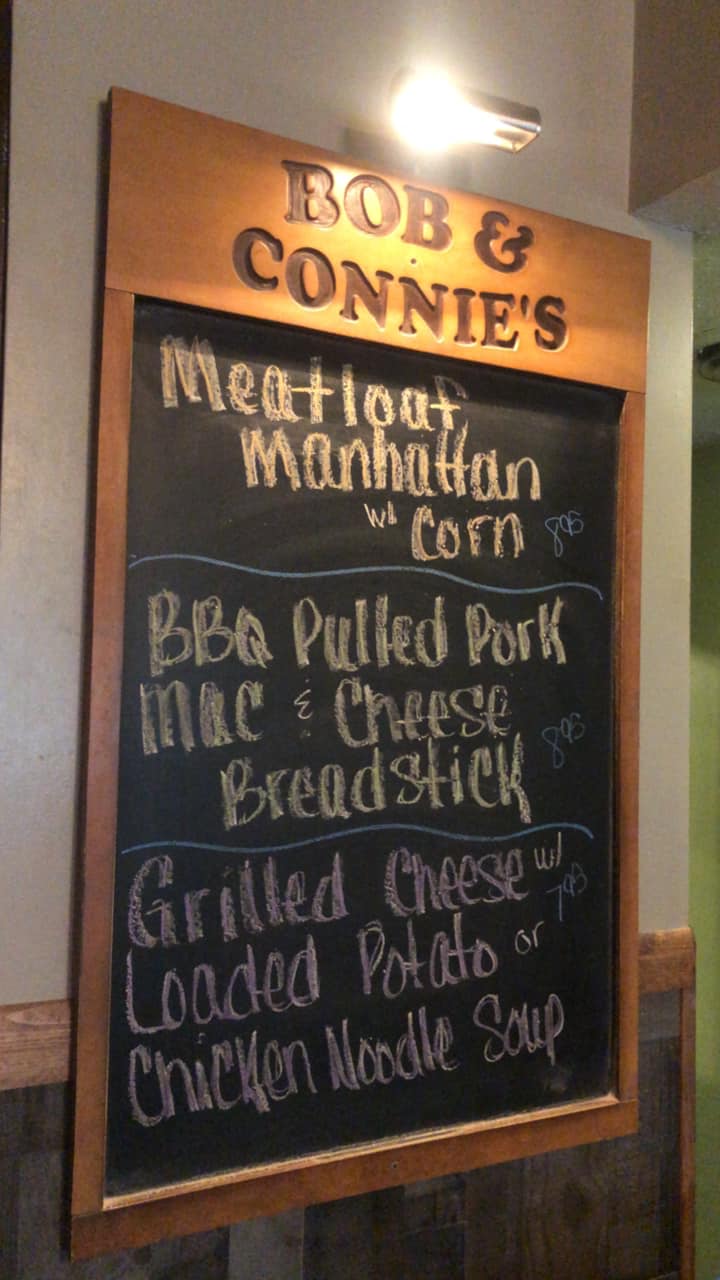 BOB &
CONNIE'S
Meatloaf
Manhattan
w/ Corn 8.95
BBQ Pulled Pork
Mac & Cheese
Breadstick 8.95
Grilled Cheese w/
Loaded Potato or
Chicken Noodle Soup